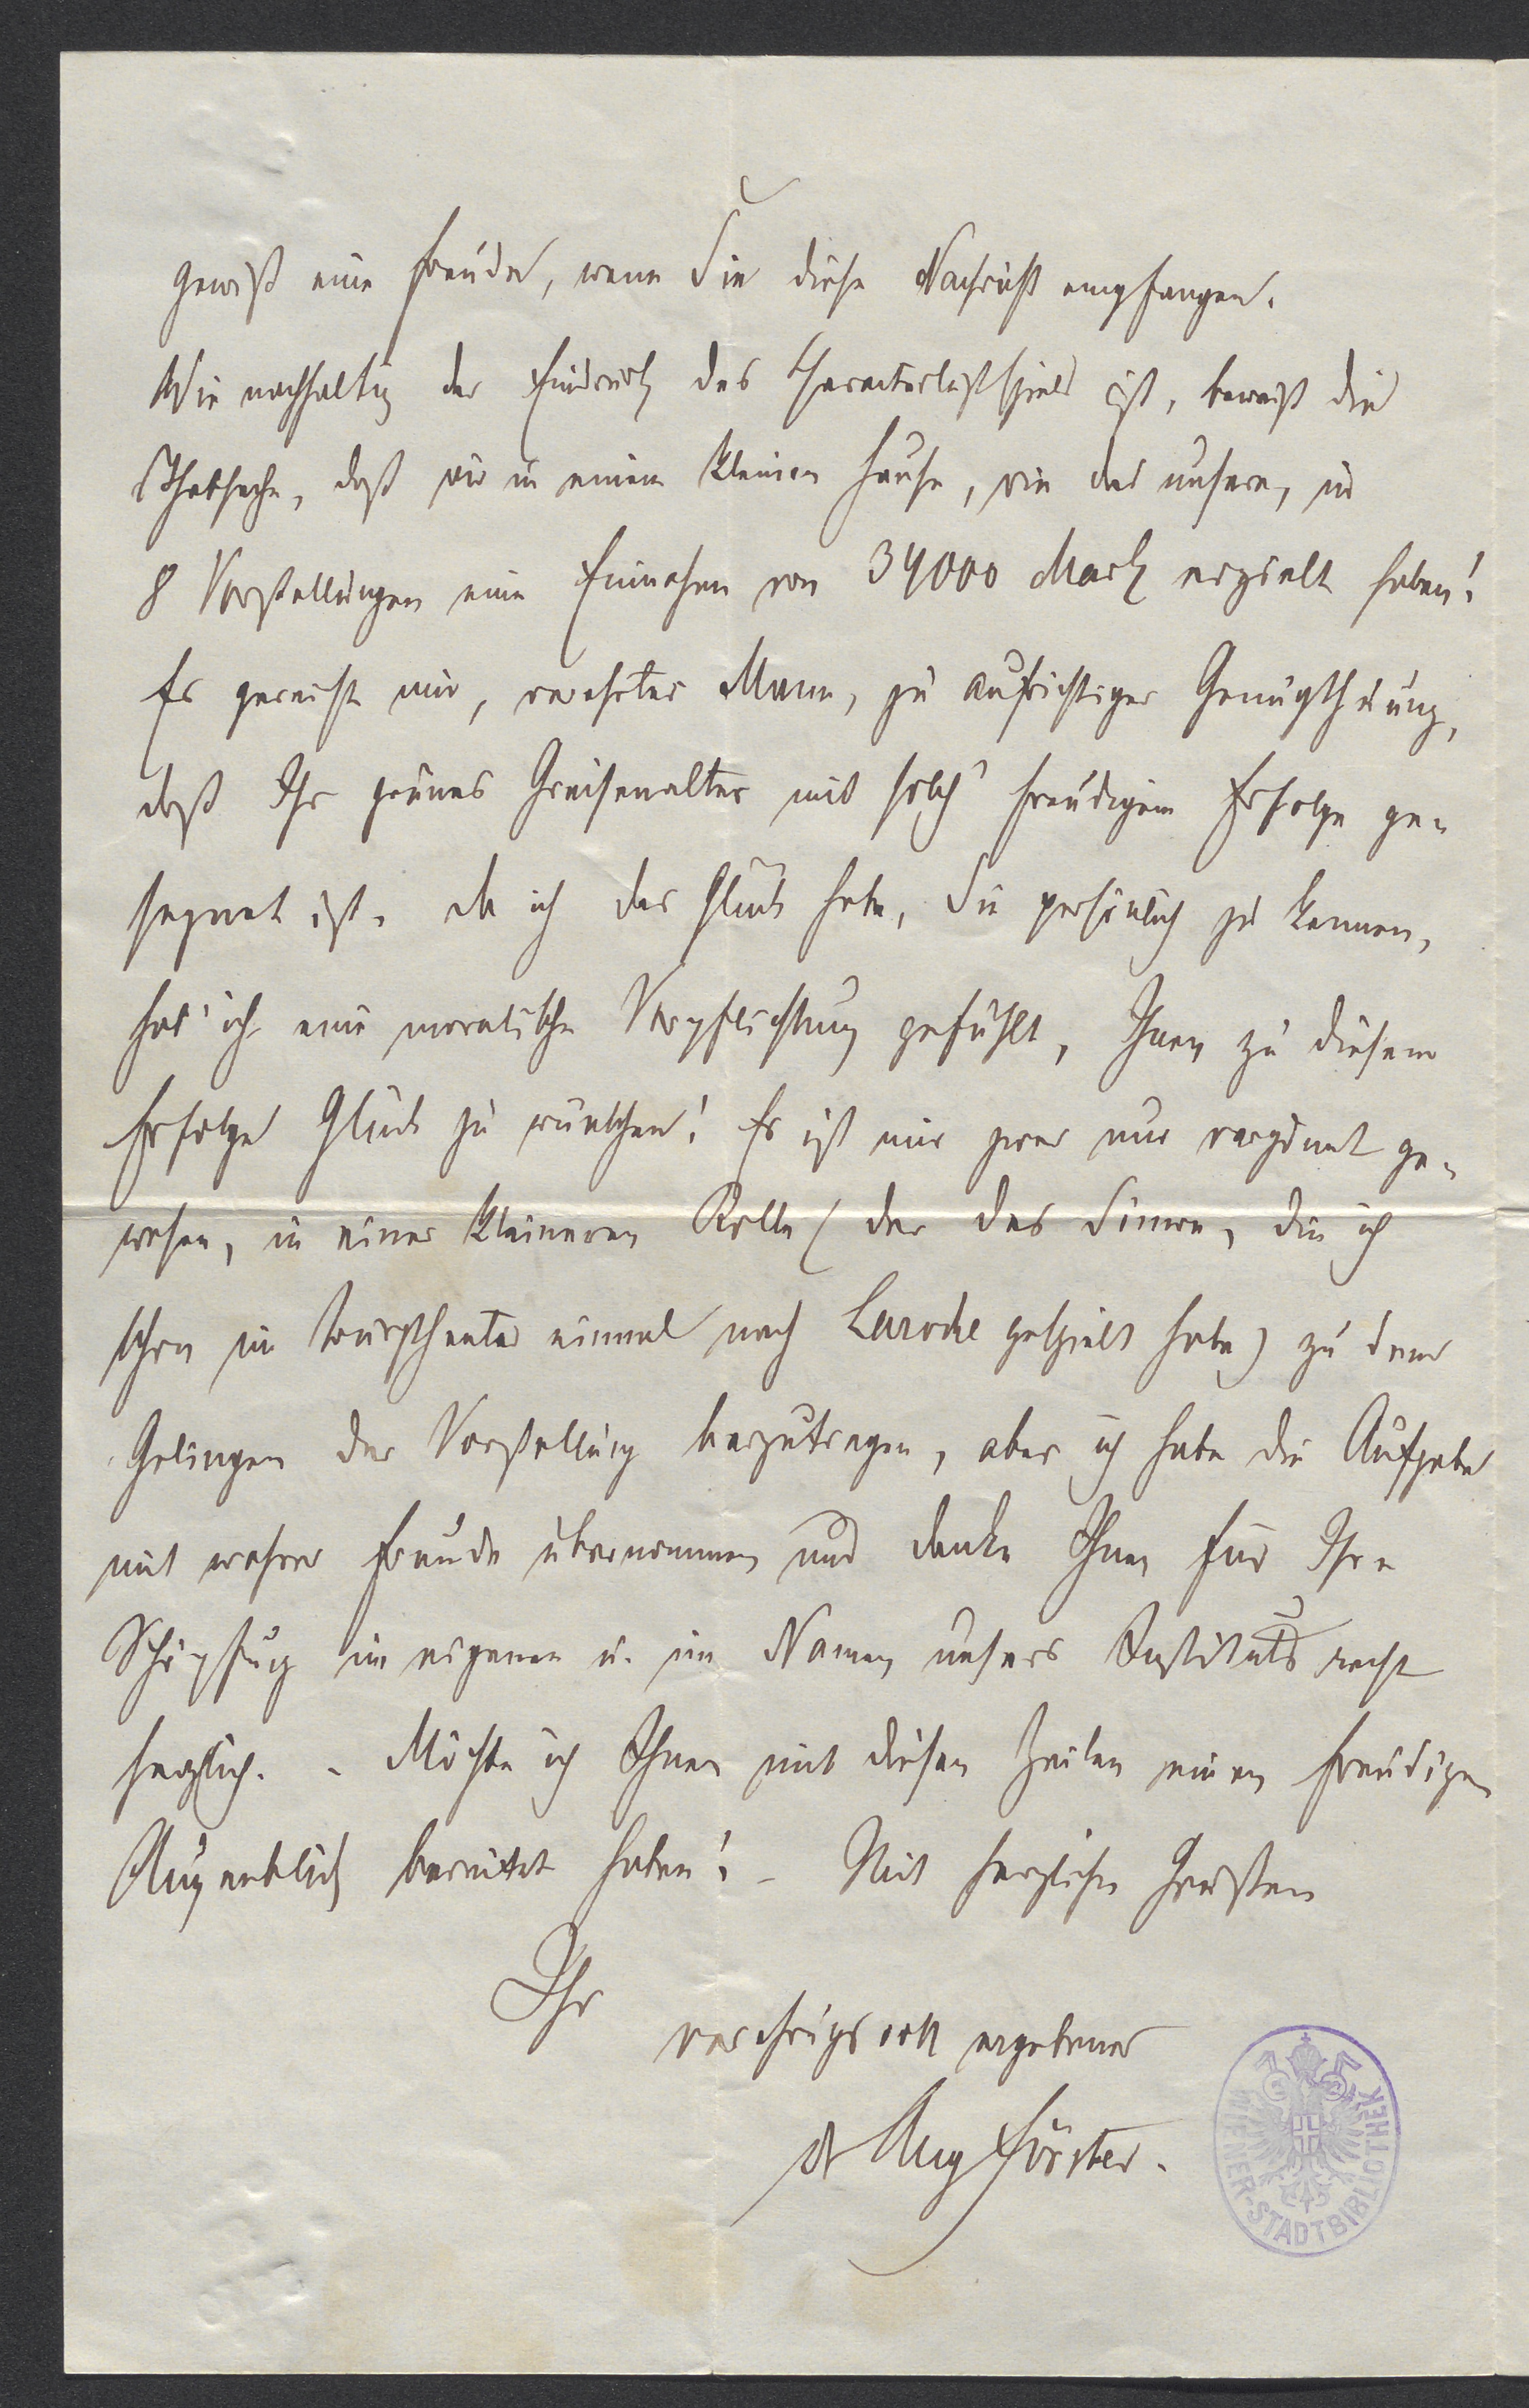 gewiß eine Freude, wenn Sie diese Nachricht empfangen.
Wie nachhaltig der Eindruck des Characterlustspiels ist, beweist die
Thatsache, daß wir in einem kleinen Hause, wie das unsere, in
8 Vorstellungen eine Einnahme von 34000 Mark erzielt haben!
Es gereicht mir, verehrter Mann, zu aufrichtiger Genugthuung,
daß Ihr grünes Greisenalter mit solch' freudigem Erfolge ge-
segnet ist. Da ich das Glück habe, Sie persönlich zu kennen,
hab' ich eine moralische Verpflichtung gefühlt, Ihnen zu diesem
Erfolge Glück zu wünschen! Es ist mir zwar nur vergönnt ge-
wesen, in einer kleineren Rolle (der des Simon, die ich
schon im Burgtheater einmal nach Laroche gespielt habe) zu dem
Gelingen der Vorstellung beizutragen, aber ich habe die Aufgabe
mit wahrer Freude übernommen und danke Ihnen für Ihre
Schöpfung im eigenen u. im Namen unsers Instituts recht
herzlich. - Möchte ich Ihnen mit diesen Zeilen einen freudigen
Augenblick bereitet haben! - Mit herzlichen Grüßen
Ihr
verehrungsvoll ergebener
Dr Aug Förster.
WIENER-STADTBIBLIOTHEK